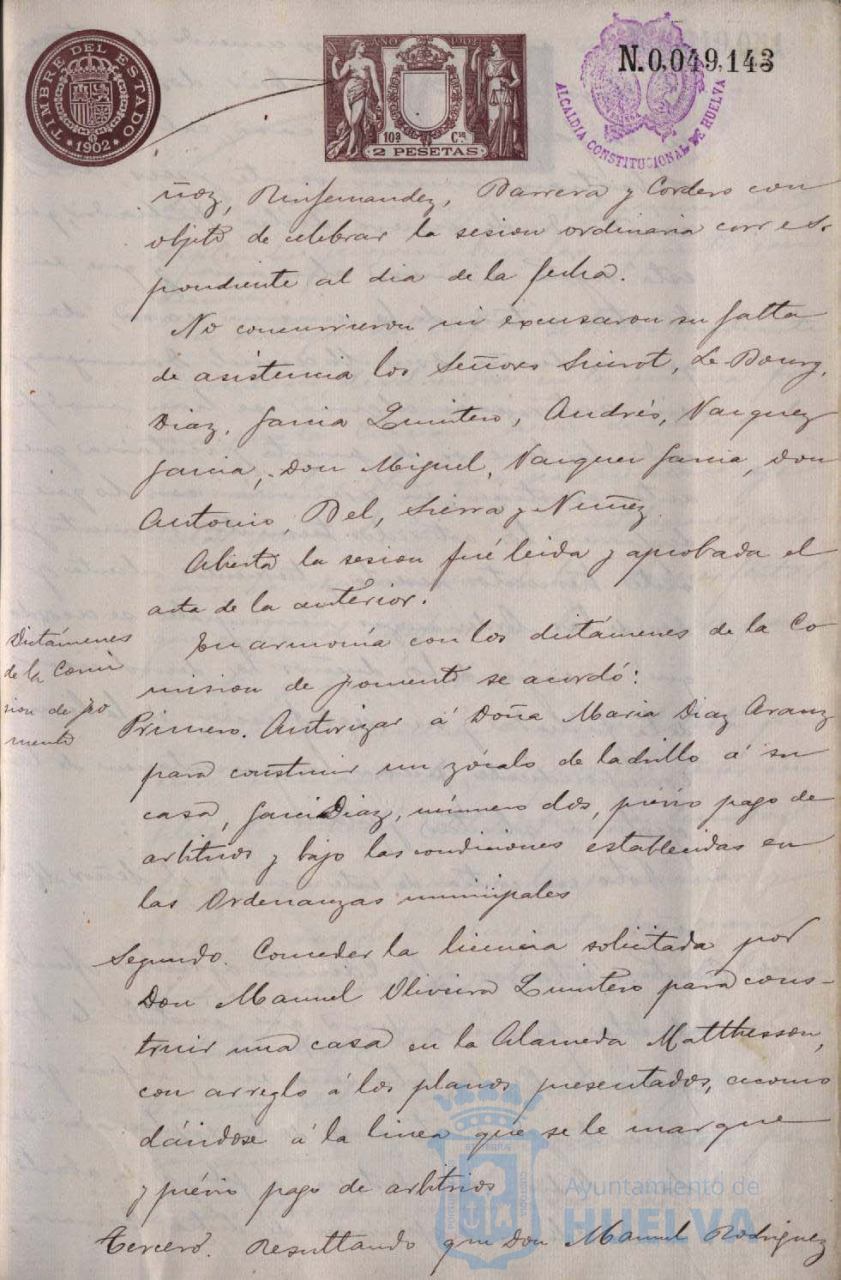 TIMBRE DEL ESTADO
1902
AÑO 1902
10ª Cˢᵉ
2 PESETAS
N.0,049,143
ALCALDIA CONSTITUCIONAL DE HUELVA
ñoz, Rinfernandez, Barrera y Cordero con
objeto de celebrar la sesion ordinaria corres-
pondiente al dia de la fecha.
No concurrieron ni excusaron su falta
de asistencia los Señores Siurot, Le Bourg,
Diaz, Garcia Quintero, Andrés, Vazquez
Garcia, Don Miguel, Vazquez Garcia, Don
Antonio, Bel, Sierra y Nuñez.
Abierta la sesion fué leida y aprobada el
acta de la anterior.
Dictámenes
de la Comi
sion de fo
mento
En armonía con los dictámenes de la Co
mision de fomento se acordó:
Primero. Autorizar á Doña Maria Diaz Aranz
para construir un zócalo de ladrillo á su
casa, Garci Diaz, número dos, prévio pago de
arbitrios y bajo las condiciones establecidas en
las Ordenanzas municipales
Segundo. Conceder la licencia solicitada por
Don Manuel Oliveira Quintero para cons-
truir una casa en la Alameda Matthesson,
con arreglo á los planos presentados, acomo
dándose á la linea que se le marque
y prévio pago de arbitrios
Tercero. Resultando que Don Manuel Rodriguez
Ayuntamiento de
HUELVA